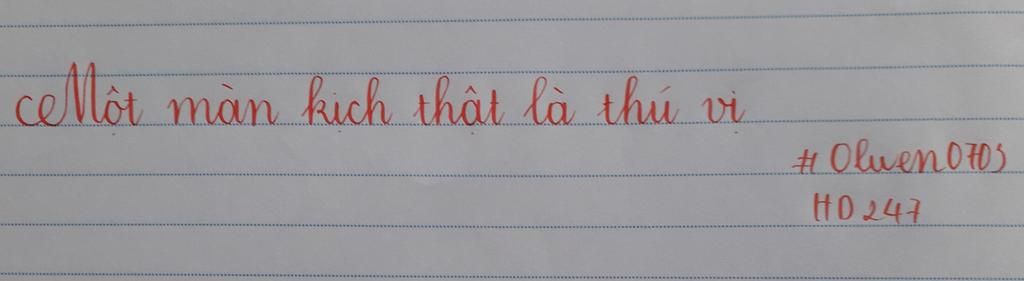 Một màn kịch thật là thú vị
#Olwen0705
HD247